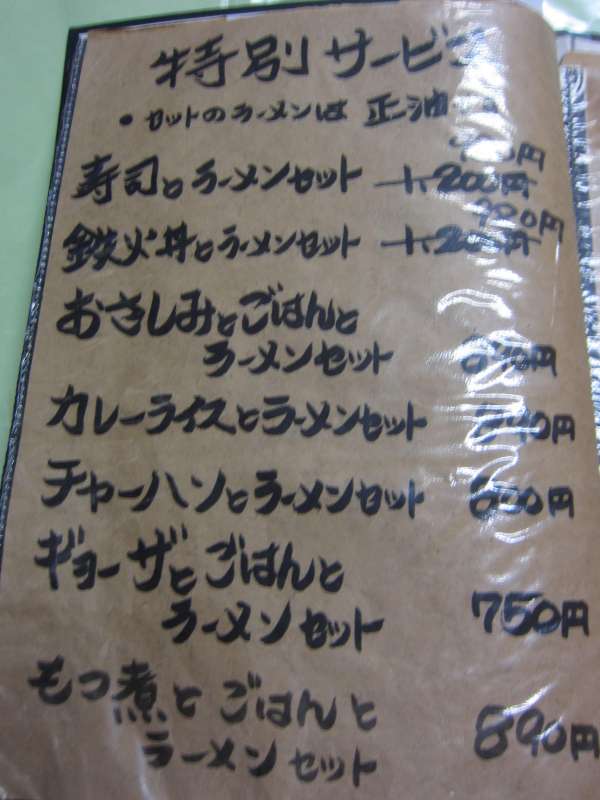 特別サービス
・セットのラーメンは 正油
寿司とラーメンセット 1,200円
鉄火丼とラーメンセット 1,200円 980円
おさしみとごはんと
ラーメンセット 円
カレーライスとラーメンセット 円
チャーハンとラーメンセット 800円
ギョーザとごはんと
ラーメンセット 750円
もつ煮とごはんと
ラーメンセット 890円